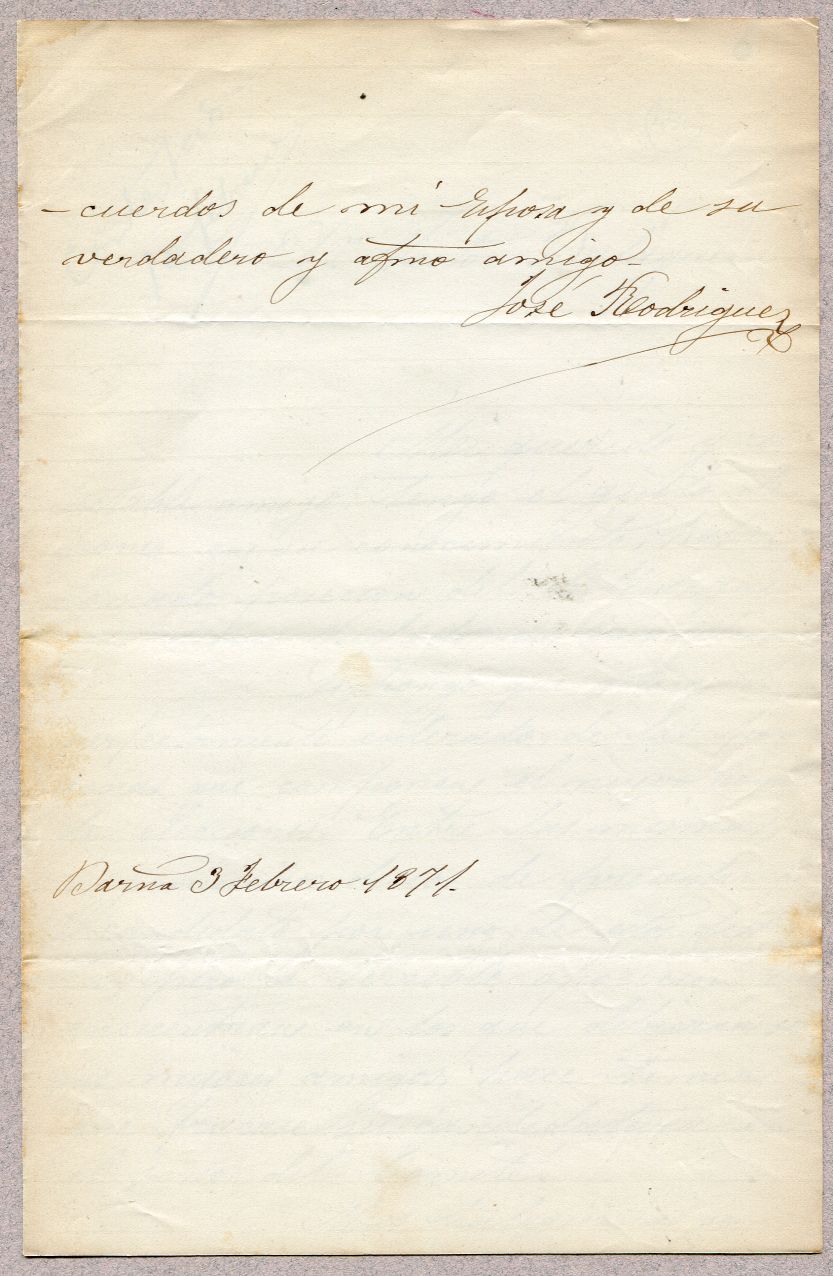 - cuerdos de mi Esposa y de su
verdadero y afmo amigo-
José Rodriguez
Barna 3 Febrero 1871.